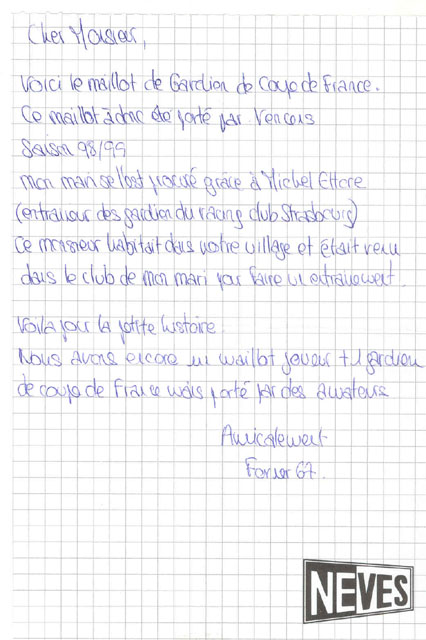 Cher Monsieur,
Voici le maillot de Gardien de Coupe de France.
Ce maillot à donc été porté par Vencors
Saison 98/99
mon mari se l'est procuré grace à Michel Ettore
(entraineur des gardien du racing club Strasbourg)
Ce monsieur habitait dans notre village et était venu
dans le club de mon mari pour faire un entrainement.
Voilà pour la petite histoire.
Nous avons encore un maillot joueur + 1 gardien
de coupe de France mais porté par des amateurs
Amicalement
67.
NEVES